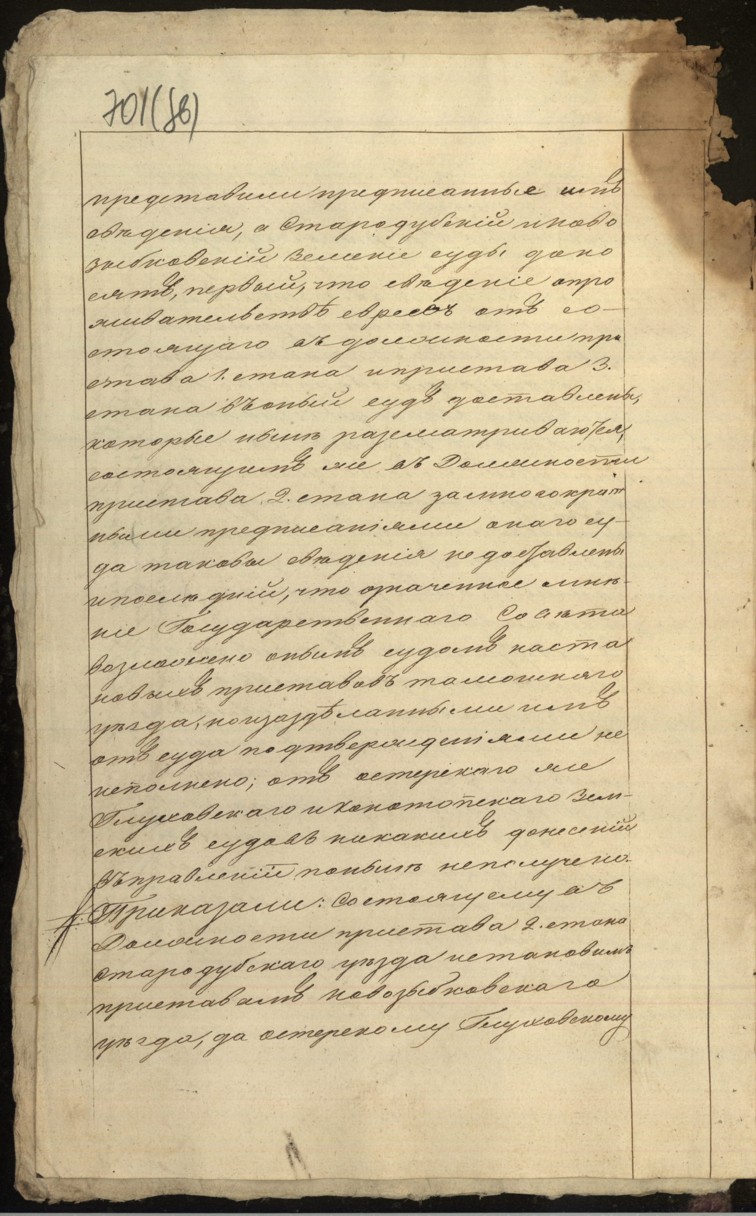 701(об)
представили предписанные имъ
свѣденія, а Стародубскій и ново
зыбковскій Земскіе суды доно
сятъ, первый, что свѣденіе о про
живательствѣ евреевъ отъ со-
стоящаго въ должности при
става 1. стана и пристава 3.
стана въ оный судъ доставлены,
которые нынѣ разсматриваются,
состоящимъ же въ Должности
пристава 2. стана за многократ
ными предписаніями онаго су-
да таковы свѣденія не доставлены
и послѣдній, что означенное мнѣ-
ніе Государственнаго Совѣта
возложено онымъ судомъ на ста
новыхъ приставовъ тамошняго
уѣзда, но и за здѣланными имъ
отъ суда подтвержденіями не
исполнено; отъ остерскаго же
Глуховскаго и конотопскаго Зем-
скихъ судовъ никакихъ донесеній
въ правленіи понынѣ неполучено.
Приказали: Состоящему въ
Должности пристава 2. стана
стародубскаго уѣзда и становымъ
приставамъ новозыбковскаго
уѣзда, да остерскому Глуховскому